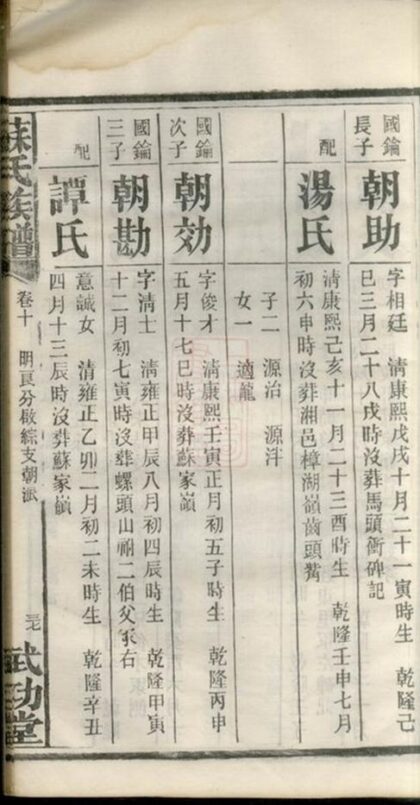 國鑰
長子
朝助
字相廷 清康熙戊戌十月二十一寅時生 乾隆己
巳三月二十八戌時沒葬馬頭衝碑記
配
湯氏
清康熙己亥十一月二十三酉時生 乾隆壬申七月
初六申時沒葬湘邑樟湖嶺齒頭嘴
子二 源治 源泮
女一 適龍
國鑰
次子
朝効
字俊才 清康熙壬寅正月初五子時生 乾隆丙申
五月十七巳時沒葬蘇家嶺
國鑰
三子
朝勘
字清士 清雍正甲辰八月初四辰時生 乾隆甲寅
十二月初七寅時沒葬螺頭山祔二伯父冢右
配
譚氏
意誠女 清雍正乙卯二月初二未時生 乾隆辛丑
四月十三辰時沒葬蘇家嶺
蘇氏族譜
卷十 明良分啟綜支朝派
三七
武功堂